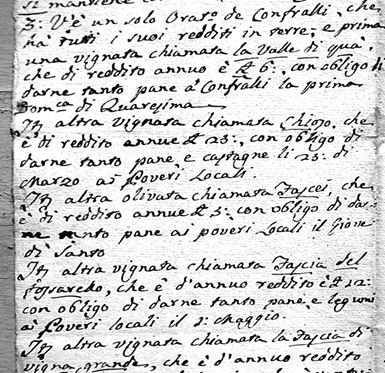 si mantiene
3: V'è un solo Orat.o de Confratti, che
hà tutti i suoi redditi in terre, e prima
una vignata chiamata la Valle di qua,
che di reddito annuo è £ 6:, con obligo di
darne tanto pane à Confratti la prima
Dom.ca di Quaresima
It altra vignata chiamata Chioso, che
è di reddito annue £ 23:, con obligo di
darne tanto pane, e castagne li 25: di
Marzo ai Poveri Locali.
It altra olivata chiamata Fascei, che
è di reddito annue £ 5: con obligo di dar-
ne tanto pane ai poveri Locali il Giove
di Santo
It altra vignata chiamata Fascia del
Fossarello, che è d'annuo reddito è £ 12:
con obligo di darne tanto pane, e legumi
ai Poveri locali il 1: Maggio.
It altra vignata chiamata la Fascia di
vigna grande, che è d'annuo reddito